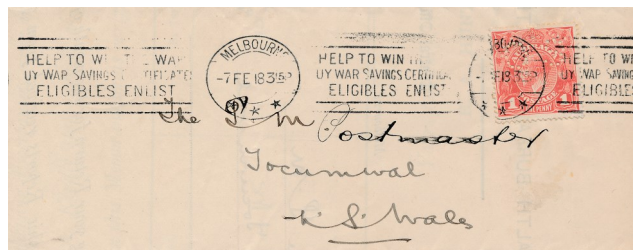 MELBOURNE
HELP TO WIN THE WAR
UY WAR SAVINGS CERTIFICATES
ELIGIBLES ENLIST
-7 FE 18 3 15 P
HELP TO WIN TH
UY WAR SAVINGS CERTIFICA
ELIGIBLES ENLIST
FE 18 3 15 P
1 PENNY 1
HELP TO WIN
UY WAR SAVIN
ELIGIBLES
The P M Postmaster
Tocumwal
N. S. Wales